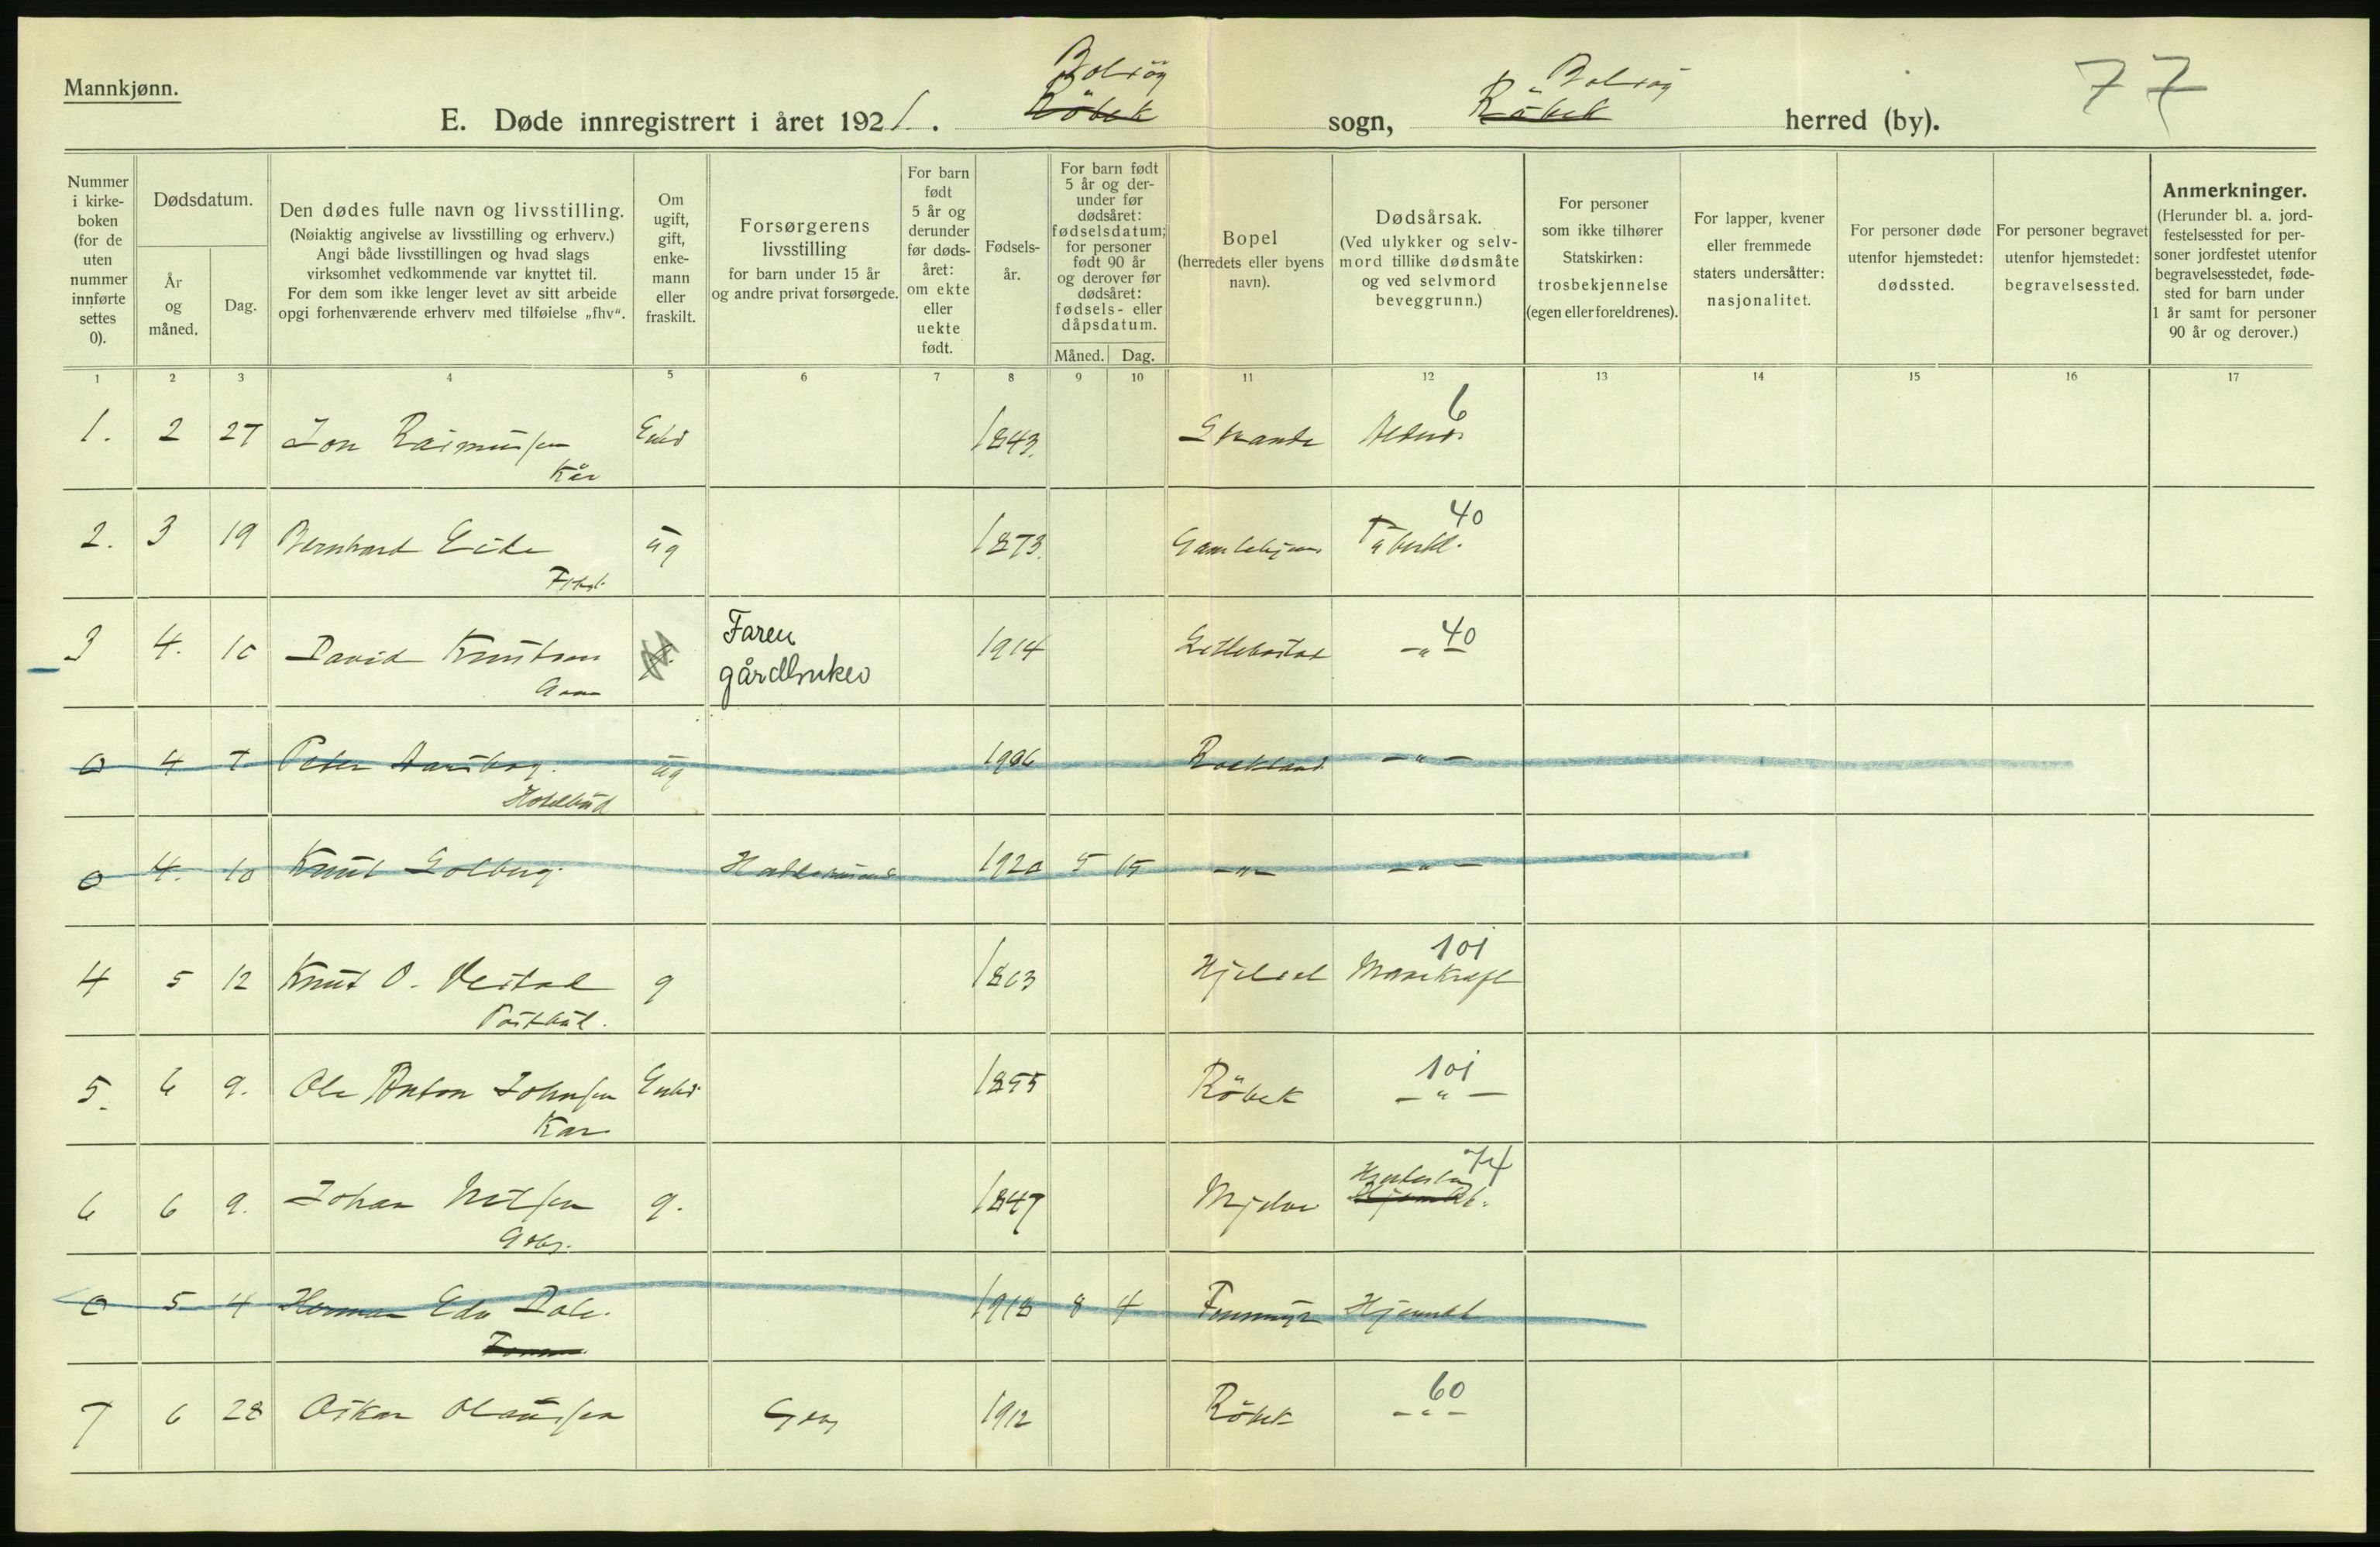 Mannkjønn.
77
Bolsöy Bolsöy
E. Døde innregistrert i året 1921. Röbek sogn, Röbek herred (by).
Nummer i kirkeboken (for de uten nummer innførte settes 0).
Dødsdatum.
År og måned.
Dag.
Den dødes fulle navn og livsstilling.
(Nøiaktig angivelse av livsstilling og erhverv.)
Angi både livsstillingen og hvad slags
virksomhet vedkommende var knyttet til.
For dem som ikke lenger levet av sitt arbeide
opgi forhenværende erhverv med tilføielse „fhv“.
Om ugift, gift, enkemann eller fraskilt.
Forsørgerens livsstilling
for barn under 15 år
og andre privat forsørgede.
For barn født 5 år og derunder før dødsåret: om ekte eller uekte født.
Fødselsår.
For barn født 5 år og derunder før dødsåret: fødselsdatum; for personer født 90 år og derover før dødsåret: fødsels- eller dåpsdatum.
Måned. Dag.
Bopel
(herredets eller byens navn).
Dødsårsak.
(Ved ulykker og selvmord tillike dødsmåte og ved selvmord beveggrunn.)
For personer som ikke tilhører Statskirken: trosbekjennelse (egen eller foreldrenes).
For lapper, kvener eller fremmede staters undersåtter: nasjonalitet.
For personer døde utenfor hjemstedet: dødssted.
For personer begravet utenfor hjemstedet: begravelsessted.
Anmerkninger.
(Herunder bl. a. jordfestelsessted for personer jordfestet utenfor begravelsesstedet, fødested for barn under 1 år samt for personer 90 år og derover.)
1 2 3 4 5 6 7 8 9 10 11 12 13 14 15 16 17
6
1. 2 27 Jon Rasmussen Enkem 1843. Strande Alderd.
Kår
40
2. 3 19 Bernhard Eide ug 1873. Gamlehjem Tuberkl.
40
3 4. 10 David Knutsen Faren gårdbruker 1914 -"-
0 4 7 Peter ug 1906 -"-
Hotelbud
0 4. 10 Knut Solberg. 1920 5 15 -"- -"-
101
4 5 12 Knut O. g 1863 Hjelset Marekraft
101
5. 6 9. Ole Anton Johnsen 1855 Röbek -"-
Kår
74
6 6 9. Johan Nilsen g. 1847 Mjelve
Gbr.
0 5 4 Herman Edv Dale. 1918 8 4 Hjemebt
60
7 6 28 Oskar Olaussen Gbr 1912 Röbek -"-